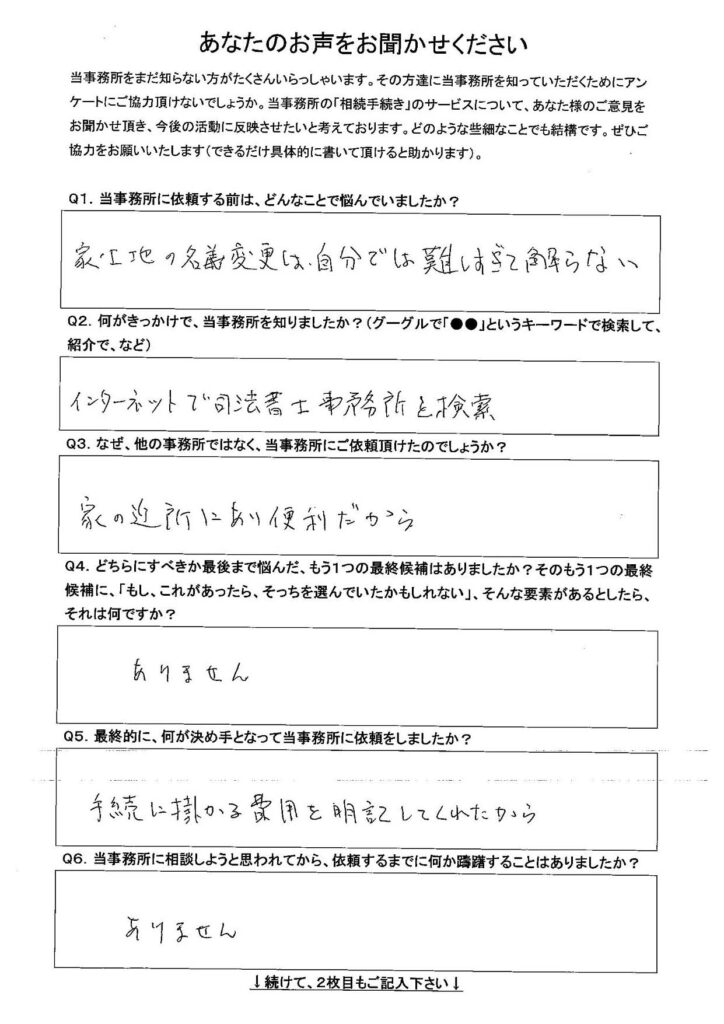 あなたのお声をお聞かせください
当事務所をまだ知らない方がたくさんいらっしゃいます。その方達に当事務所を知っていただくためにアン
ケートにご協力頂けないでしょうか。当事務所の「相続手続き」のサービスについて、あなた様のご意見を
お聞かせ頂き、今後の活動に反映させたいと考えております。どのような些細なことでも結構です。ぜひご
協力をお願いいたします(できるだけ具体的に書いて頂けると助かります)。
Q1. 当事務所に依頼する前は、どんなことで悩んでいましたか?
家・土地の名義変更は、自分では難しすぎて解らない
Q2. 何がきっかけで、当事務所を知りましたか?(グーグルで「●●」というキーワードで検索して、
紹介で、など)
インターネットで司法書士事務所を検索
Q3. なぜ、他の事務所ではなく、当事務所にご依頼頂けたのでしょうか?
家の近所にあり便利だから
Q4. どちらにすべきか最後まで悩んだ、もう1つの最終候補はありましたか?そのもう1つの最終
候補に、「もし、これがあったら、そっちを選んでいたかもしれない」、そんな要素があるとしたら、
それは何ですか?
ありません
Q5. 最終的に、何が決め手となって当事務所に依頼をしましたか?
手続に掛かる費用を明記してくれたから
Q6. 当事務所に相談しようと思われてから、依頼するまでに何か躊躇することはありましたか?
ありません
↓続けて、2枚目もご記入下さい↓